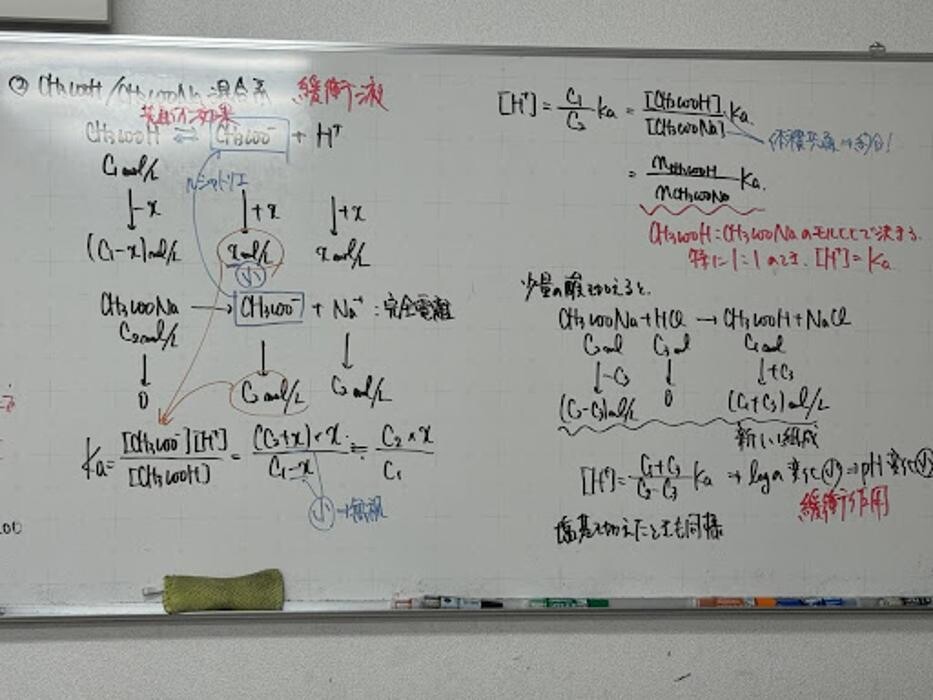 ② CH3COOH/CH3COONa 混合系 緩衝液
共通イオン効果
CH3COOH ⇄ CH3COO⁻ + H⁺
C₁mol/L
ルシャトリエ
↓-x ↓+x ↓+x
(C₁-x)mol/L xmol/L xmol/L
小
CH3COONa → CH3COO⁻ + Na⁺ : 完全電離
C₂mol/L
↓ ↓ ↓
0 C₂mol/L C₂mol/L
Ka = [CH3COO⁻][H⁺]/[CH3COOH] = (C₂+x)×x/C₁-x ≒ C₂×x/C₁
小→無視
[H⁺] = C₁/C₂ Ka = [CH3COOH]/[CH3COONa] Ka.
体積共通→約分!
= nCH3COOH/nCH3COONa Ka.
CH3COOH:CH3COONaのモル比で決まる.
特に1:1のとき. [H⁺]=Ka
少量の酸を加えると.
CH3COONa+HCl → CH3COOH+NaCl
C₂mol C₃mol C₁mol
↓-C₃ ↓ ↓+C₃
(C₂-C₃)mol/L 0 (C₁+C₃)mol/L
新しい組成
[H⁺]=C₁+C₃/C₂-C₃ Ka → logの変化小→pH変化小
緩衝作用
塩基を加えたときも同様
00